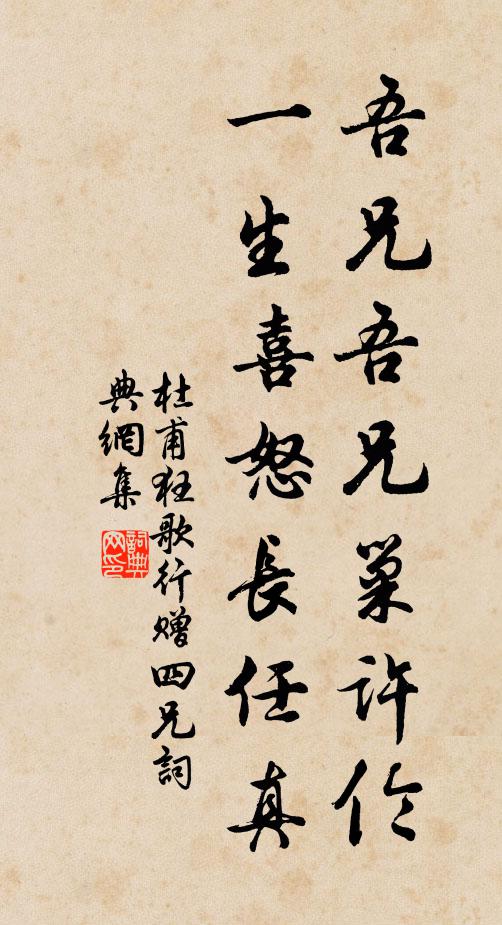 吾兄吾兄巢許伦
一生喜怒長任真
杜甫狂歌行赠四兄詞
典網集
詞典
网印